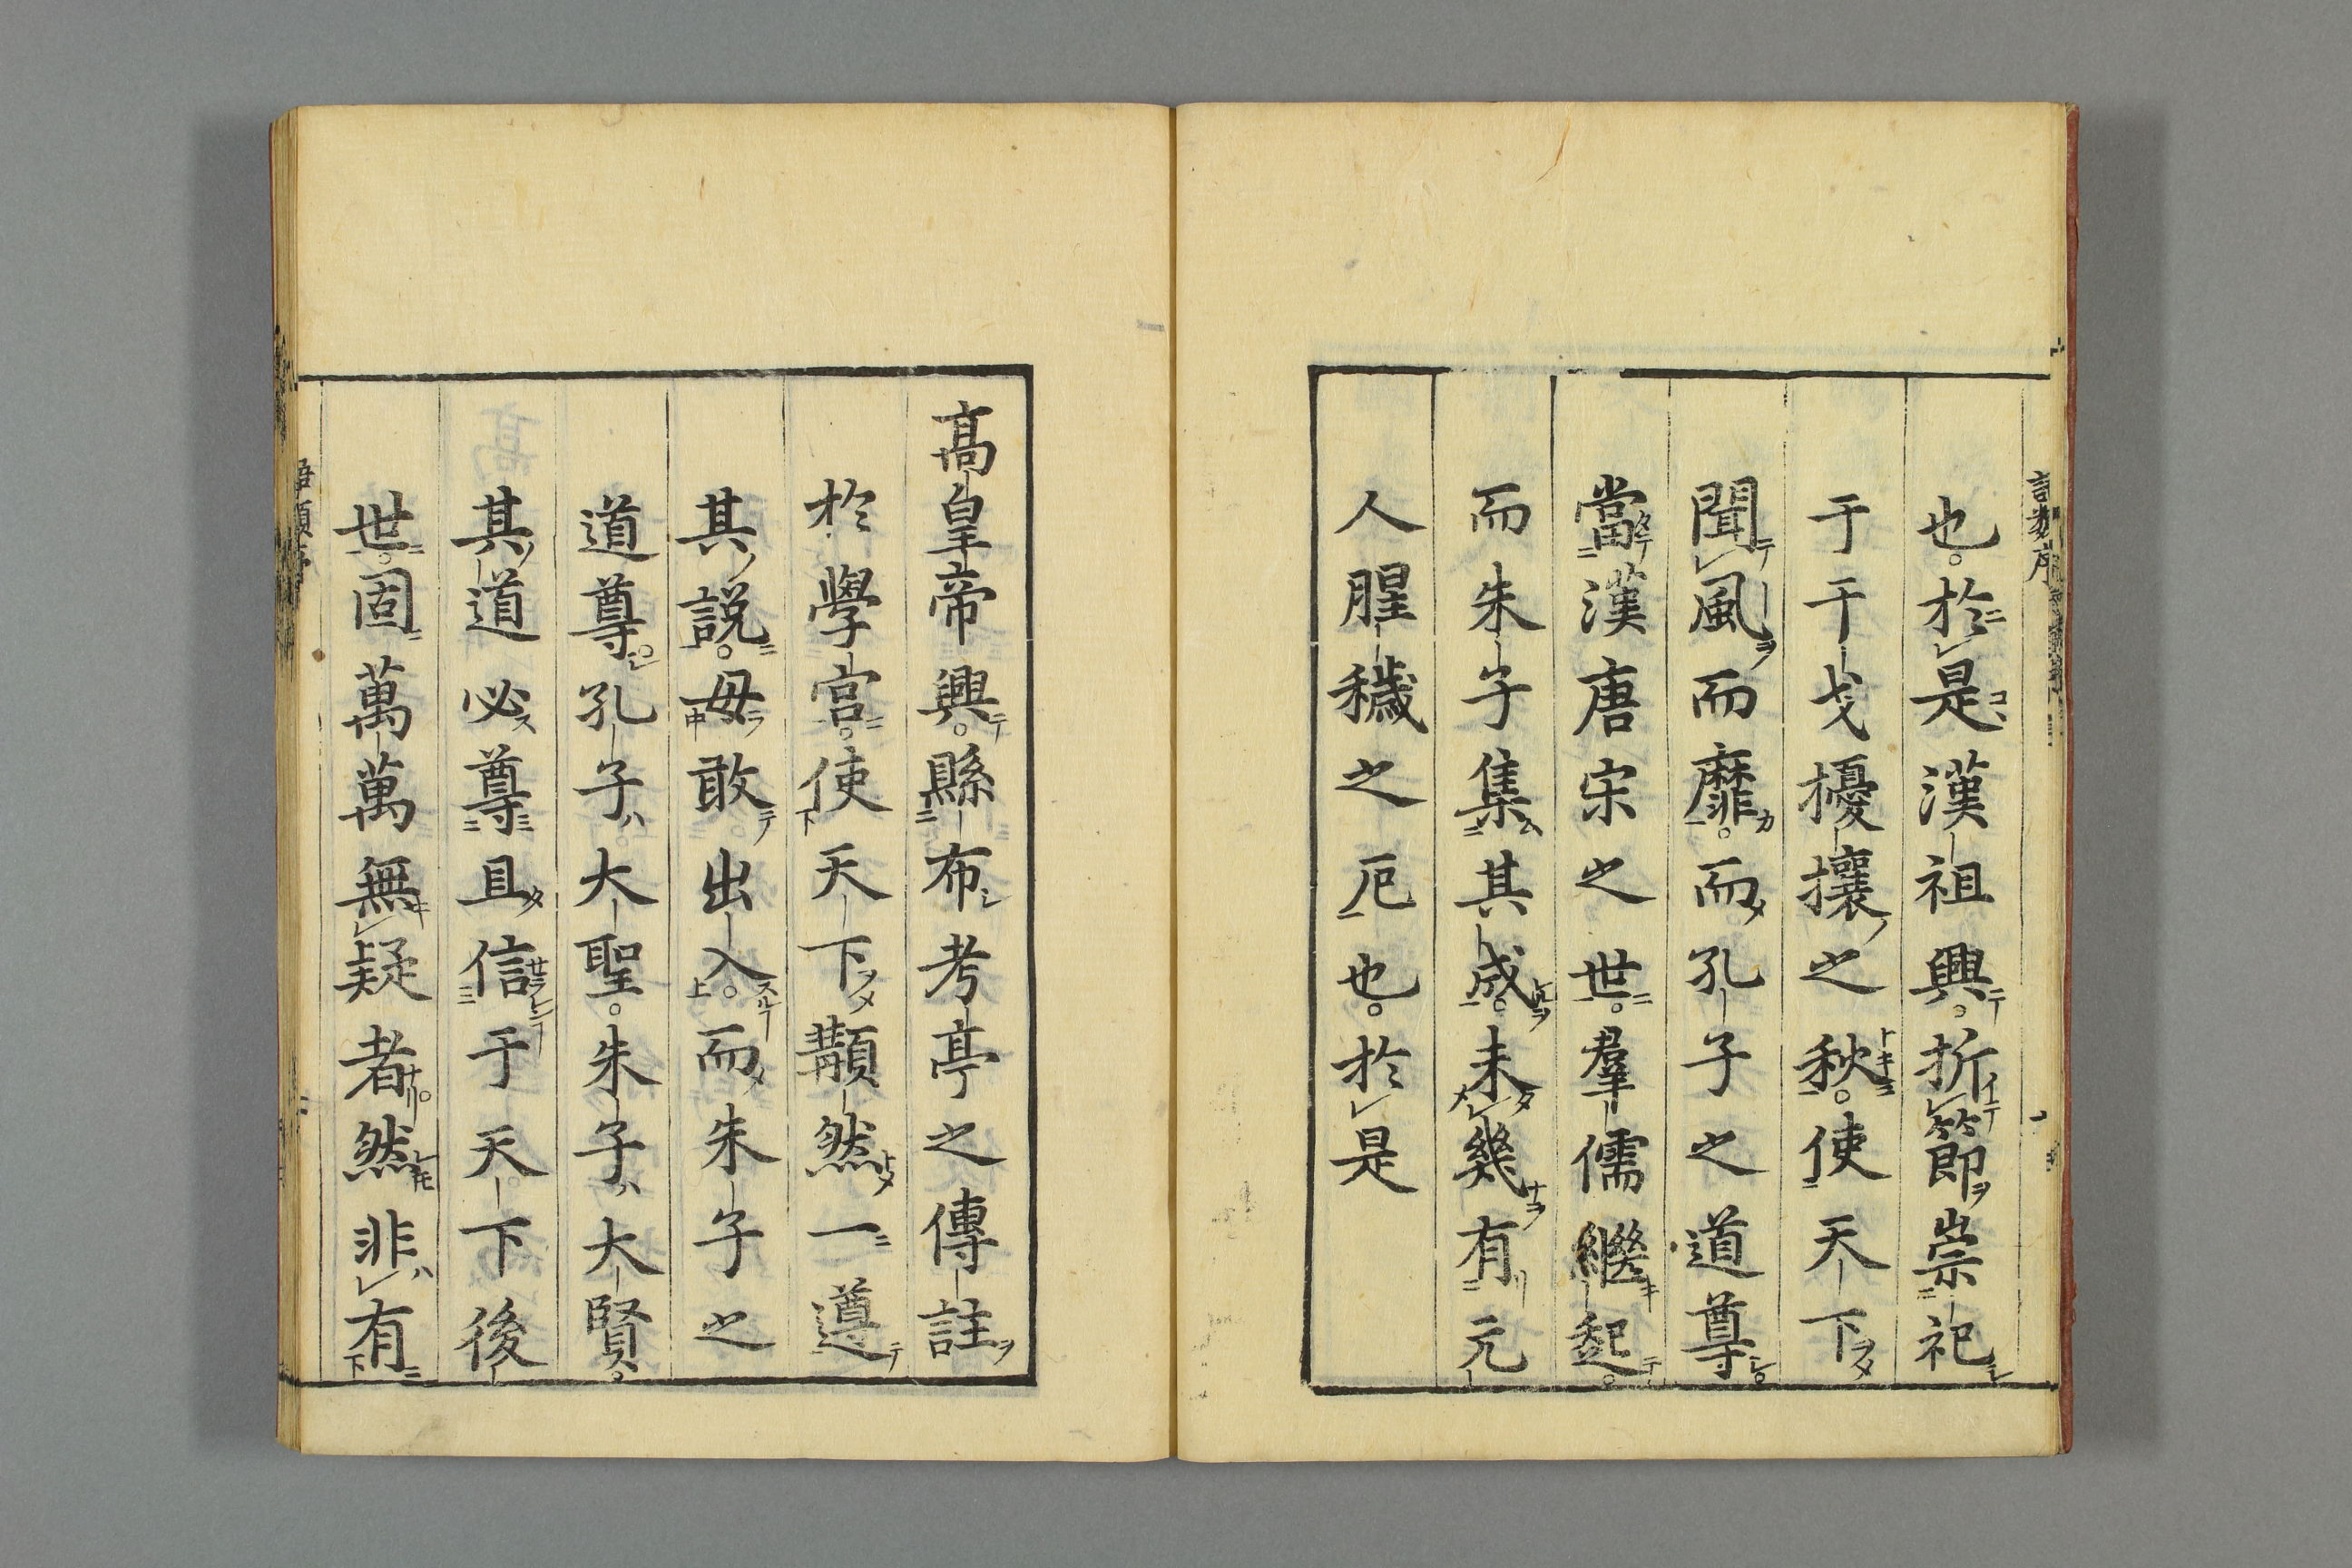 也。於是漢祖興。折節崇祀
于干戈擾攘之秋。使天下
聞風而靡。而孔子之道尊。
當漢唐宋之世。羣儒繼起。
而朱子集其成。未幾有元
人腥穢之厄也。於是
高皇帝興。縣布考亭之傳註
於學宮。使天下顒然一遵
其說。毋敢出入。而朱子之
道尊。孔子大聖。朱子大賢。
其道必尊且信于天下後
世。固萬萬無疑者。然非有